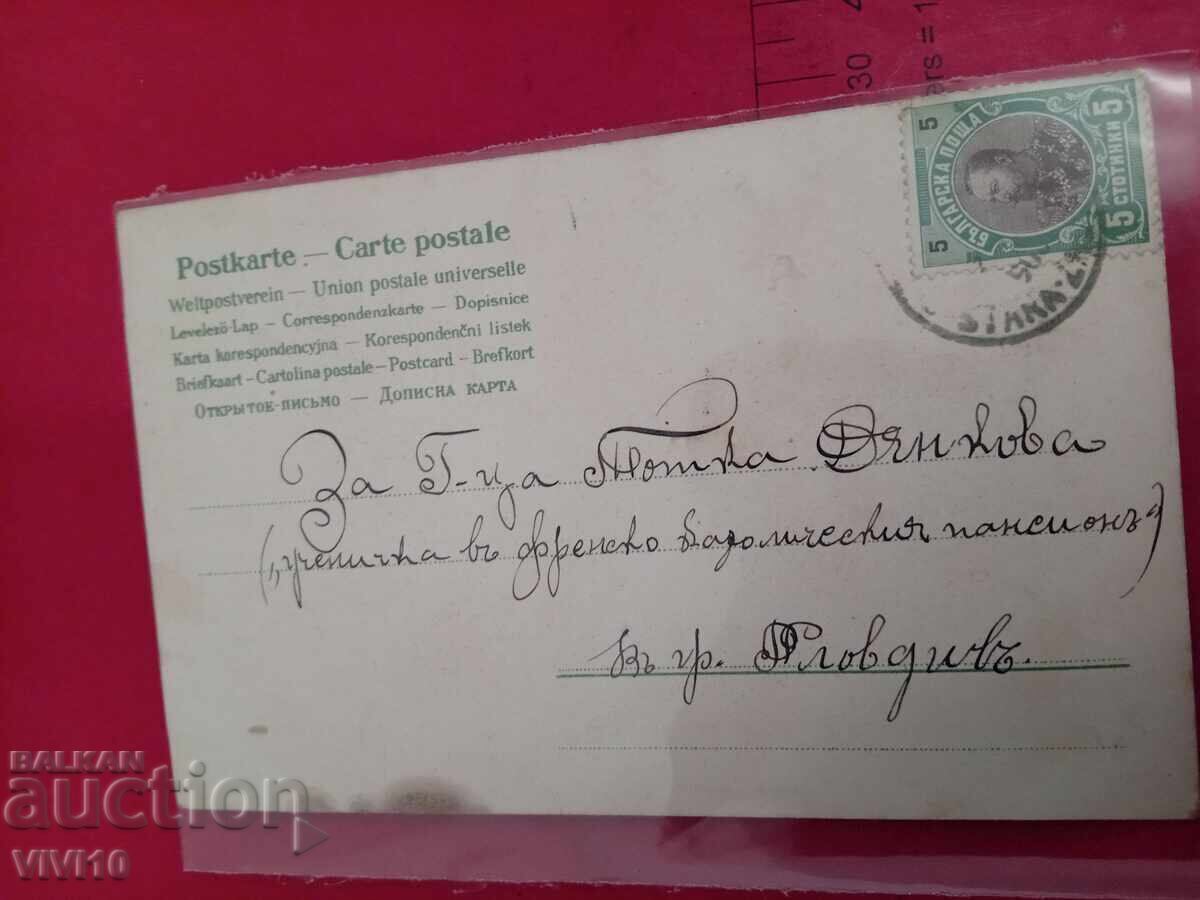 30 4
ers = 1
5
5
БЪЛГАРСКА ПОЩА
5 СТОТИНКИ 5
STARA-Z
Postkarte — Carte postale
Weltpostverein — Union postale universelle
Levelező-Lap — Correspondenzkarte — Dopisnice
Karta korespondencyjna — Korespondenční listek
Briefkaart — Cartolina postale — Postcard — Brefkort
Открыток-письмо — Дописна карта
За Г-ца Тотка Дянкова
(„ученичка въ френско католическия пансионъ“)
въ гр. Пловдивъ.
BALKAN
auction
VIVI10